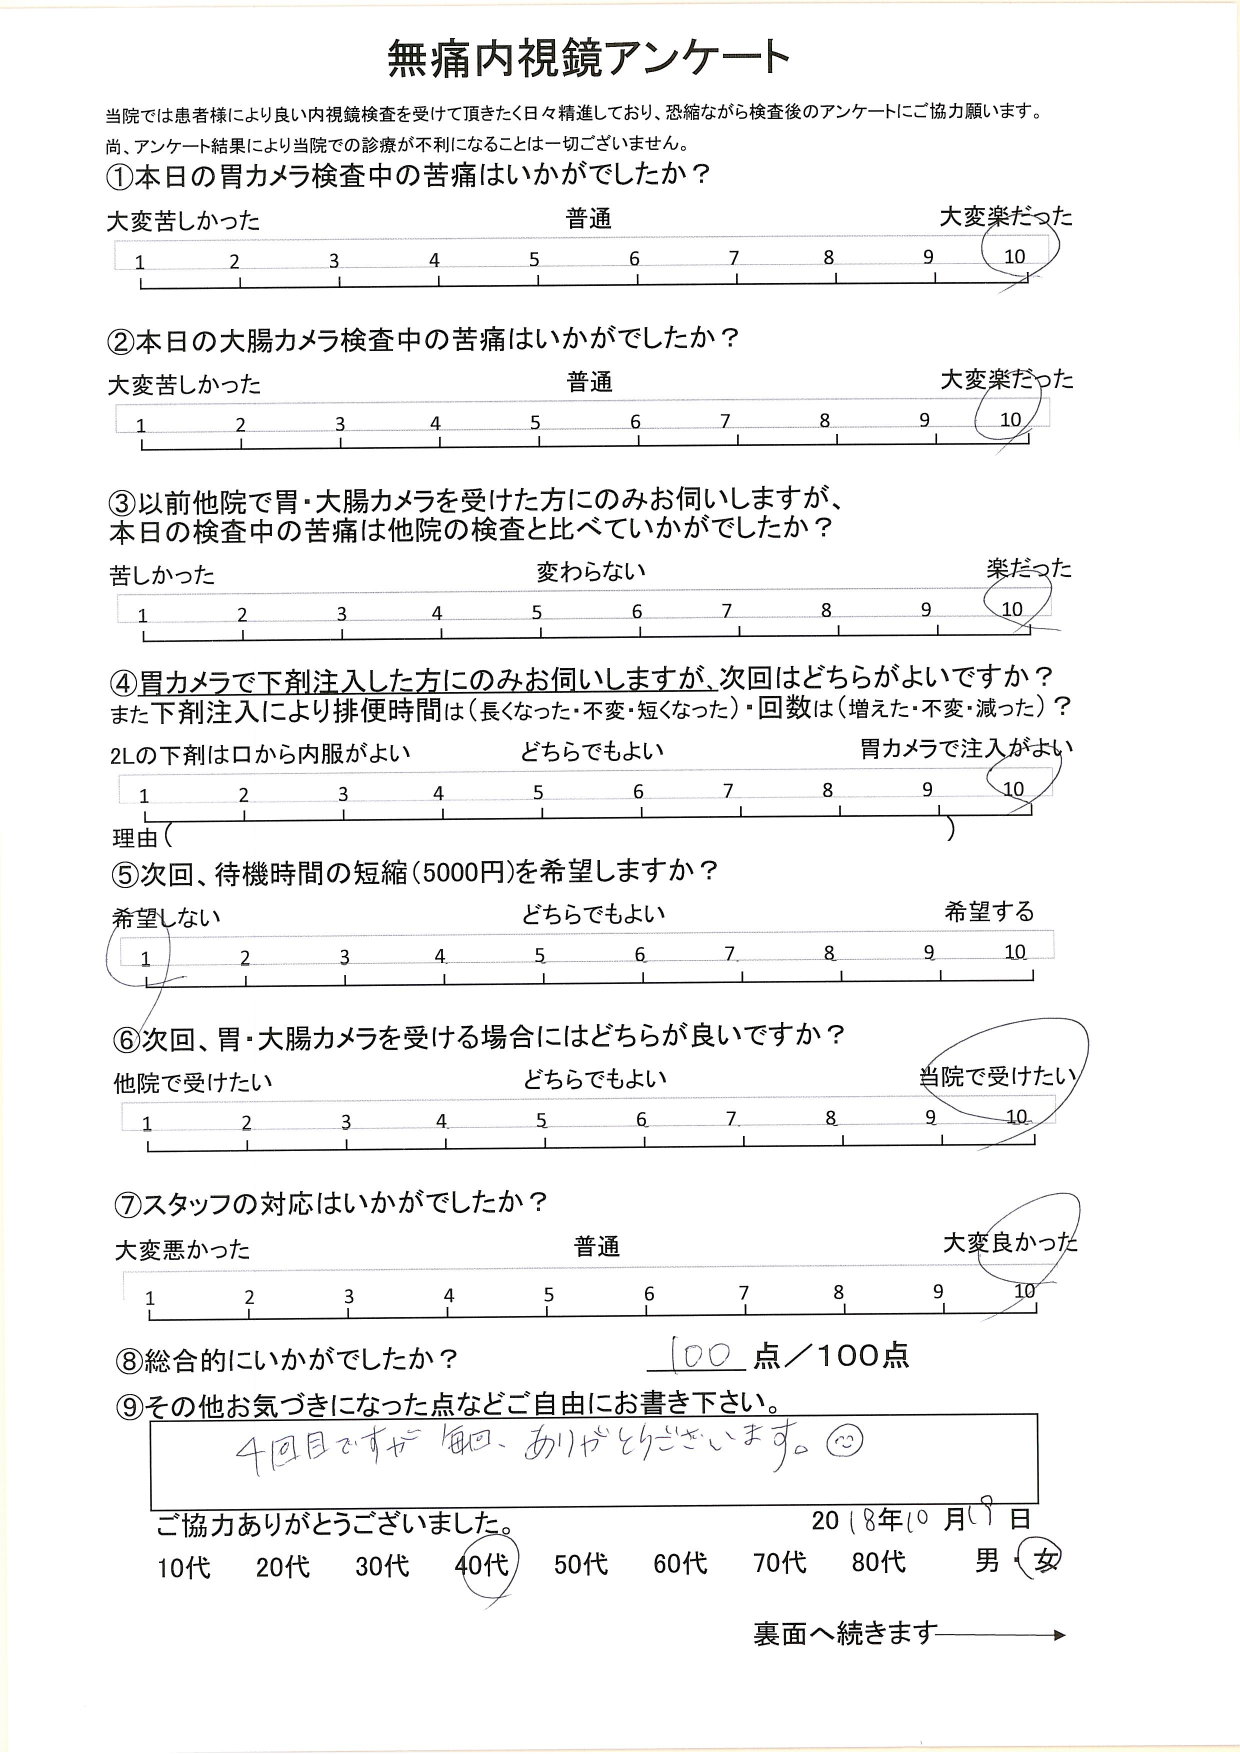 無痛内視鏡アンケート
当院では患者様により良い内視鏡検査を受けて頂きたく日々精進しており、恐縮ながら検査後のアンケートにご協力願います。
尚、アンケート結果により当院での診療が不利になることは一切ございません。
①本日の胃カメラ検査中の苦痛はいかがでしたか？
大変苦しかった 普通 大変楽だった
1 2 3 4 5 6 7 8 9 10
②本日の大腸カメラ検査中の苦痛はいかがでしたか？
大変苦しかった 普通 大変楽だった
1 2 3 4 5 6 7 8 9 10
③以前他院で胃・大腸カメラを受けた方にのみお伺いしますが、
本日の検査中の苦痛は他院の検査と比べていかがでしたか？
苦しかった 変わらない 楽だった
1 2 3 4 5 6 7 8 9 10
④胃カメラで下剤注入した方にのみお伺いしますが、次回はどちらがよいですか？
また下剤注入により排便時間は（長くなった・不変・短くなった）・回数は（増えた・不変・減った）？
2Lの下剤は口から内服がよい どちらでもよい 胃カメラで注入がよい
1 2 3 4 5 6 7 8 9 10
理由（ ）
⑤次回、待機時間の短縮（5000円）を希望しますか？
希望しない どちらでもよい 希望する
1 2 3 4 5 6 7 8 9 10
⑥次回、胃・大腸カメラを受ける場合にはどちらが良いですか？
他院で受けたい どちらでもよい 当院で受けたい
1 2 3 4 5 6 7 8 9 10
⑦スタッフの対応はいかがでしたか？
大変悪かった 普通 大変良かった
1 2 3 4 5 6 7 8 9 10
⑧総合的にいかがでしたか？ 100 点／100点
⑨その他お気づきになった点などご自由にお書き下さい。
4回目ですが 毎回、ありがとうございます。
ご協力ありがとうございました。 2018年10月19日
10代 20代 30代 40代 50代 60代 70代 80代 男・女
裏面へ続きます